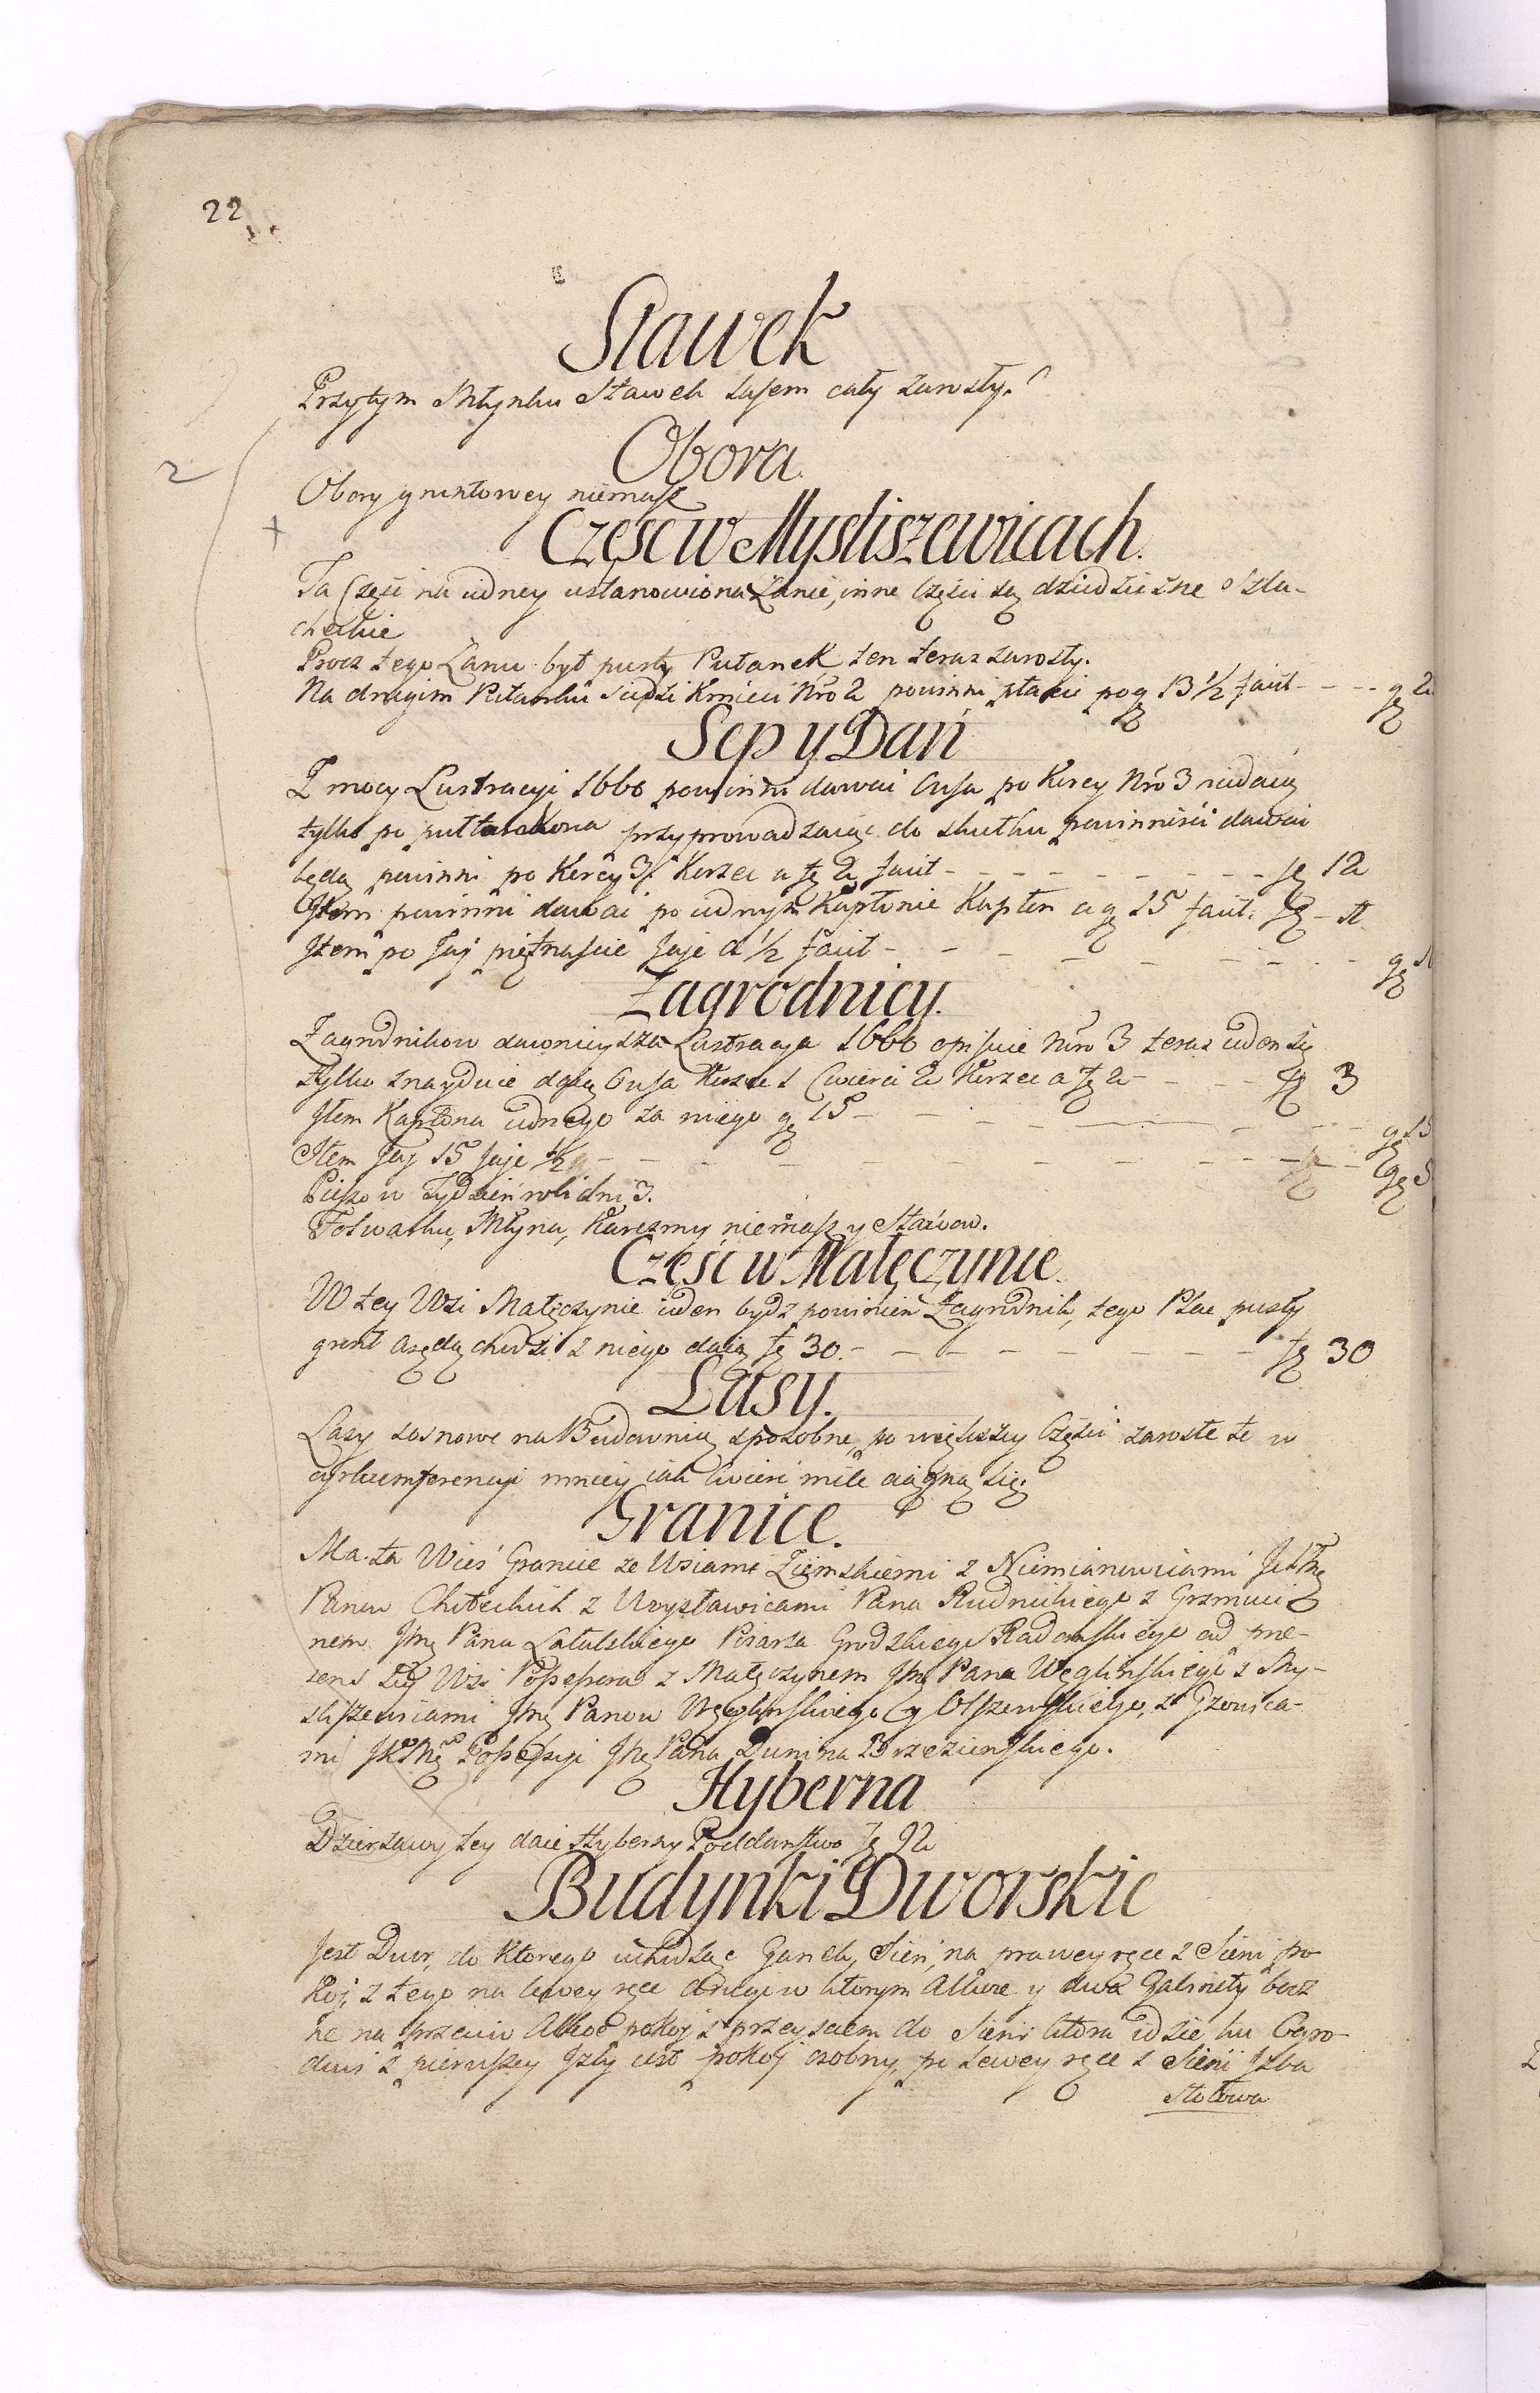 22
Stawek
Przytym Młynku Stawek lasem cały zarosły.
Obora
Obory gruntowey niemasz
Część w Mysliszewicach.
Ta Część na iedney ustanowiona Łanie, inne Części są dziedziczne Szla-
checkie
Procz tego Łanu był pusty Pułanek ten teraz zarosły.
Na drugim Pułanku siedzi Kmieci Nro 2 powinni płacic po g 13 1/2 facit
Sep y Dań
Z mocy Lustracyi 1660 powinni dawac Owsa po Korcy Nro 3 niedaią
tylko po pułtarakorca przyprowadzaiąc do skutku powinności dawać
będą powinni po Korcy 3. Korzec a fl 2 facit - fl 12
Item powinni dawać po iednym Kapłonie Kapłon a g 15 facit fl -
Item po Jaj piętnascie Jaje a 1/2 facit -
Zagrodnicy.
Zagrodnikow dawnieysza Lustracya 1660 opisuie Nro 3 teraz ieden się
tylko znayduie daią Owsa Korzec 1 Cwierci 2 Korzec a fl 2 - fl 3
Item Kapłona iednego za niego g 15 - g 15
Item Jaj 15 Jaje 1/2 -
Pieszo w Tydzień robi dni 3.
Folwarku, Młyna, Karczmy niemasz y Stawow.
Część w Małęczynie.
W tey Wsi Małęczynie ieden bydz powinien Zagrodnik, tego Plac pusty
grunt Arędą chodzi z niego daią fl 30. - fl 30
Lasy.
Lasy sosnowe na Budownią sposobne, po większey Części zarosłe te w
cyrkumferencyi mniey iak Cwierć mile ciągną się
Granice.
Ma ta Wieś Granice ze Wsiami Ziemskiemi z Niemianowicami
Panow Choteckich z Wrysławicami Pana Rudnickiego z Grzmuci
nem Jmę Pana Latalskiego Pisarza Grodzkiego Radomskiego ad prae-
sens tey Wsi Possesora z Małęczynem Jmę Pana Węglińskiego z My-
sliszewicami Jmę Panow Węglińskiego y Olszewskiego, z Gzowica-
mi Possessyi Jmę Pana Dunina Brzezinskiego.
Hyberna
Dzierzawy tey daie Hyberny Poddanstwo fl 92
Budynki Dworskie
Jest Dwor, do ktorego wchodząc Ganek, Sień, na prawey ręce z Sieni po-
koj, z tego na lewey ręce drugi w ktorym Alkierz y dwa Gabinety bocz
ne na przeciw pokoj z przeysciem do Sieni ktora idzie ku Ogro-
dowi z pierwszey Jzby iest pokoj osobny, po lewey ręce z Sieni Jzba
Stołowa